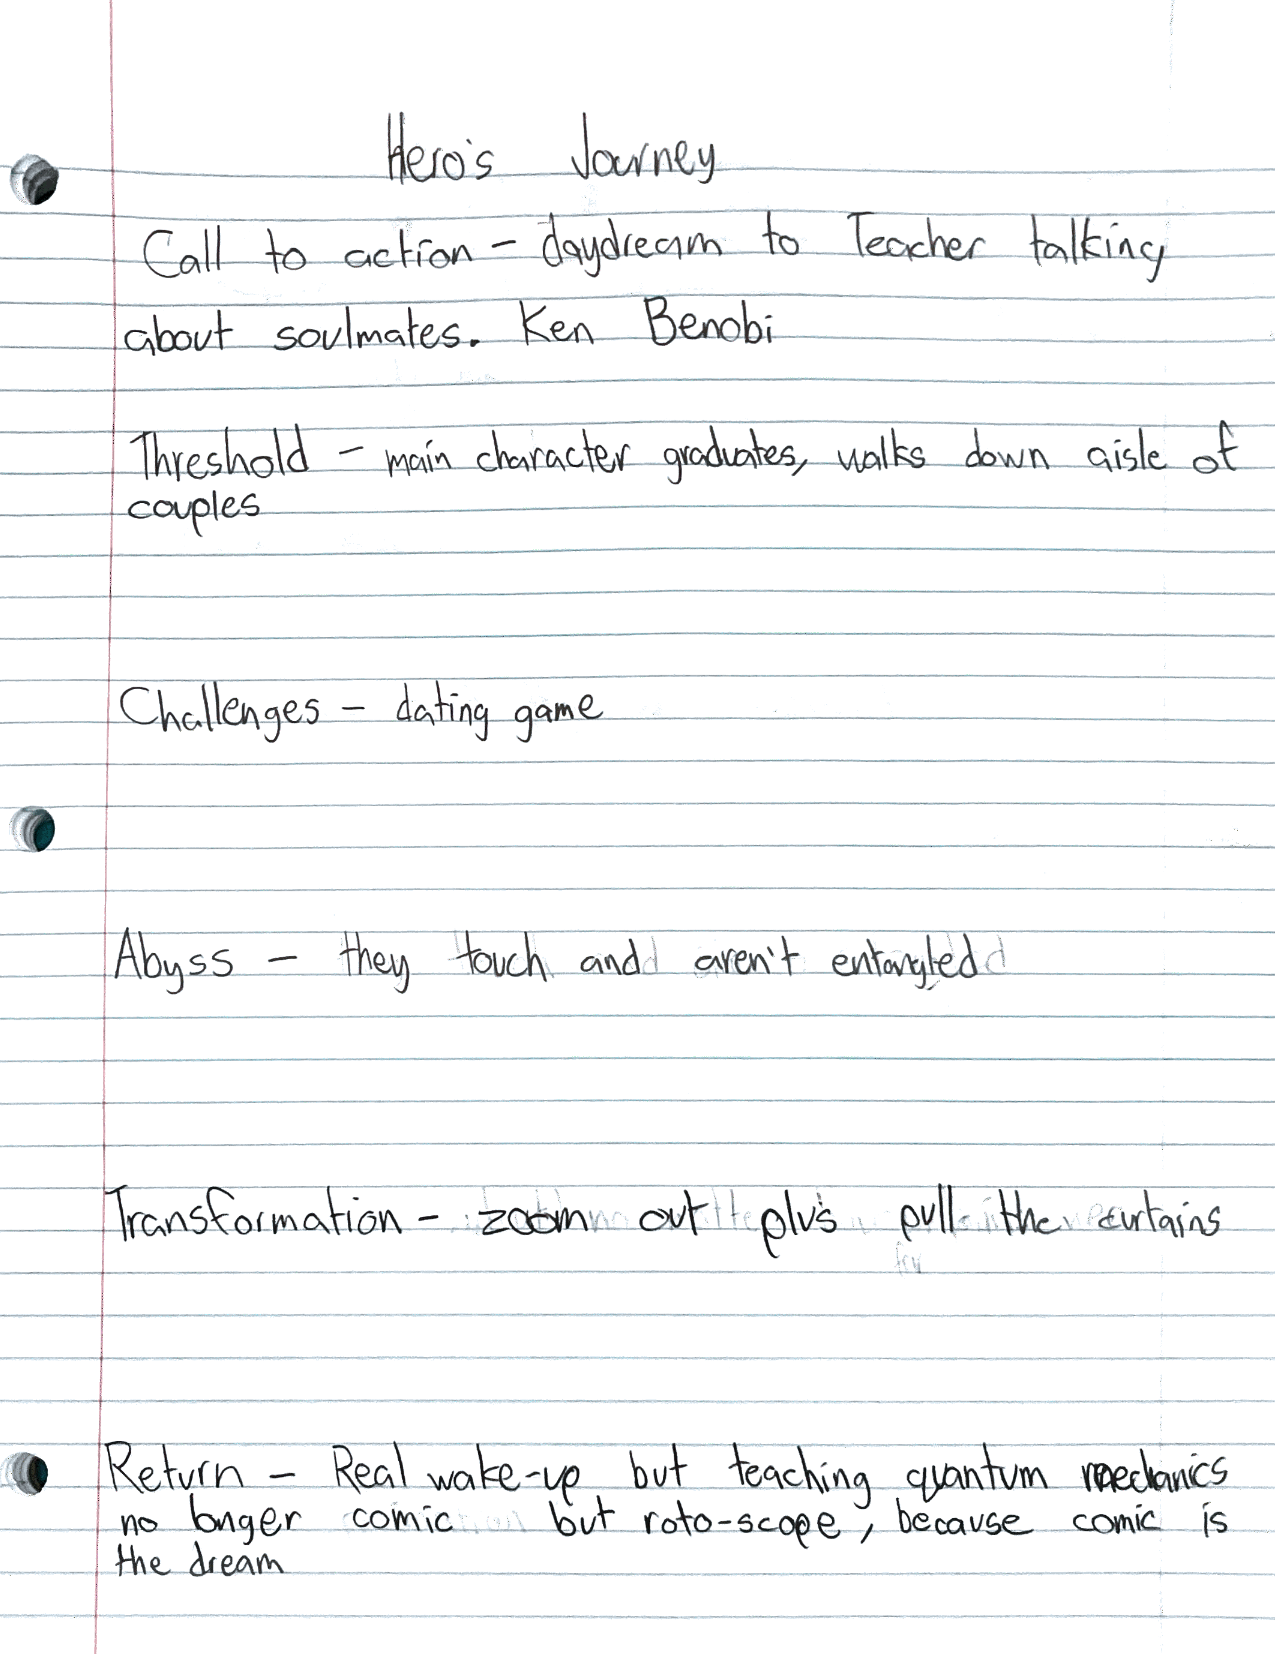 Hero's Journey
Call to action - daydream to Teacher talking
about soulmates. Ken Benobi
Threshold - main character graduates, walks down aisle of
couples
Challenges - dating game
Abyss - they touch and aren't entangled
Transformation - zoom out plus pull the curtains
Return - Real wake-up but teaching quantum mechanics
no longer comic but roto-scope, because comic is
the dream